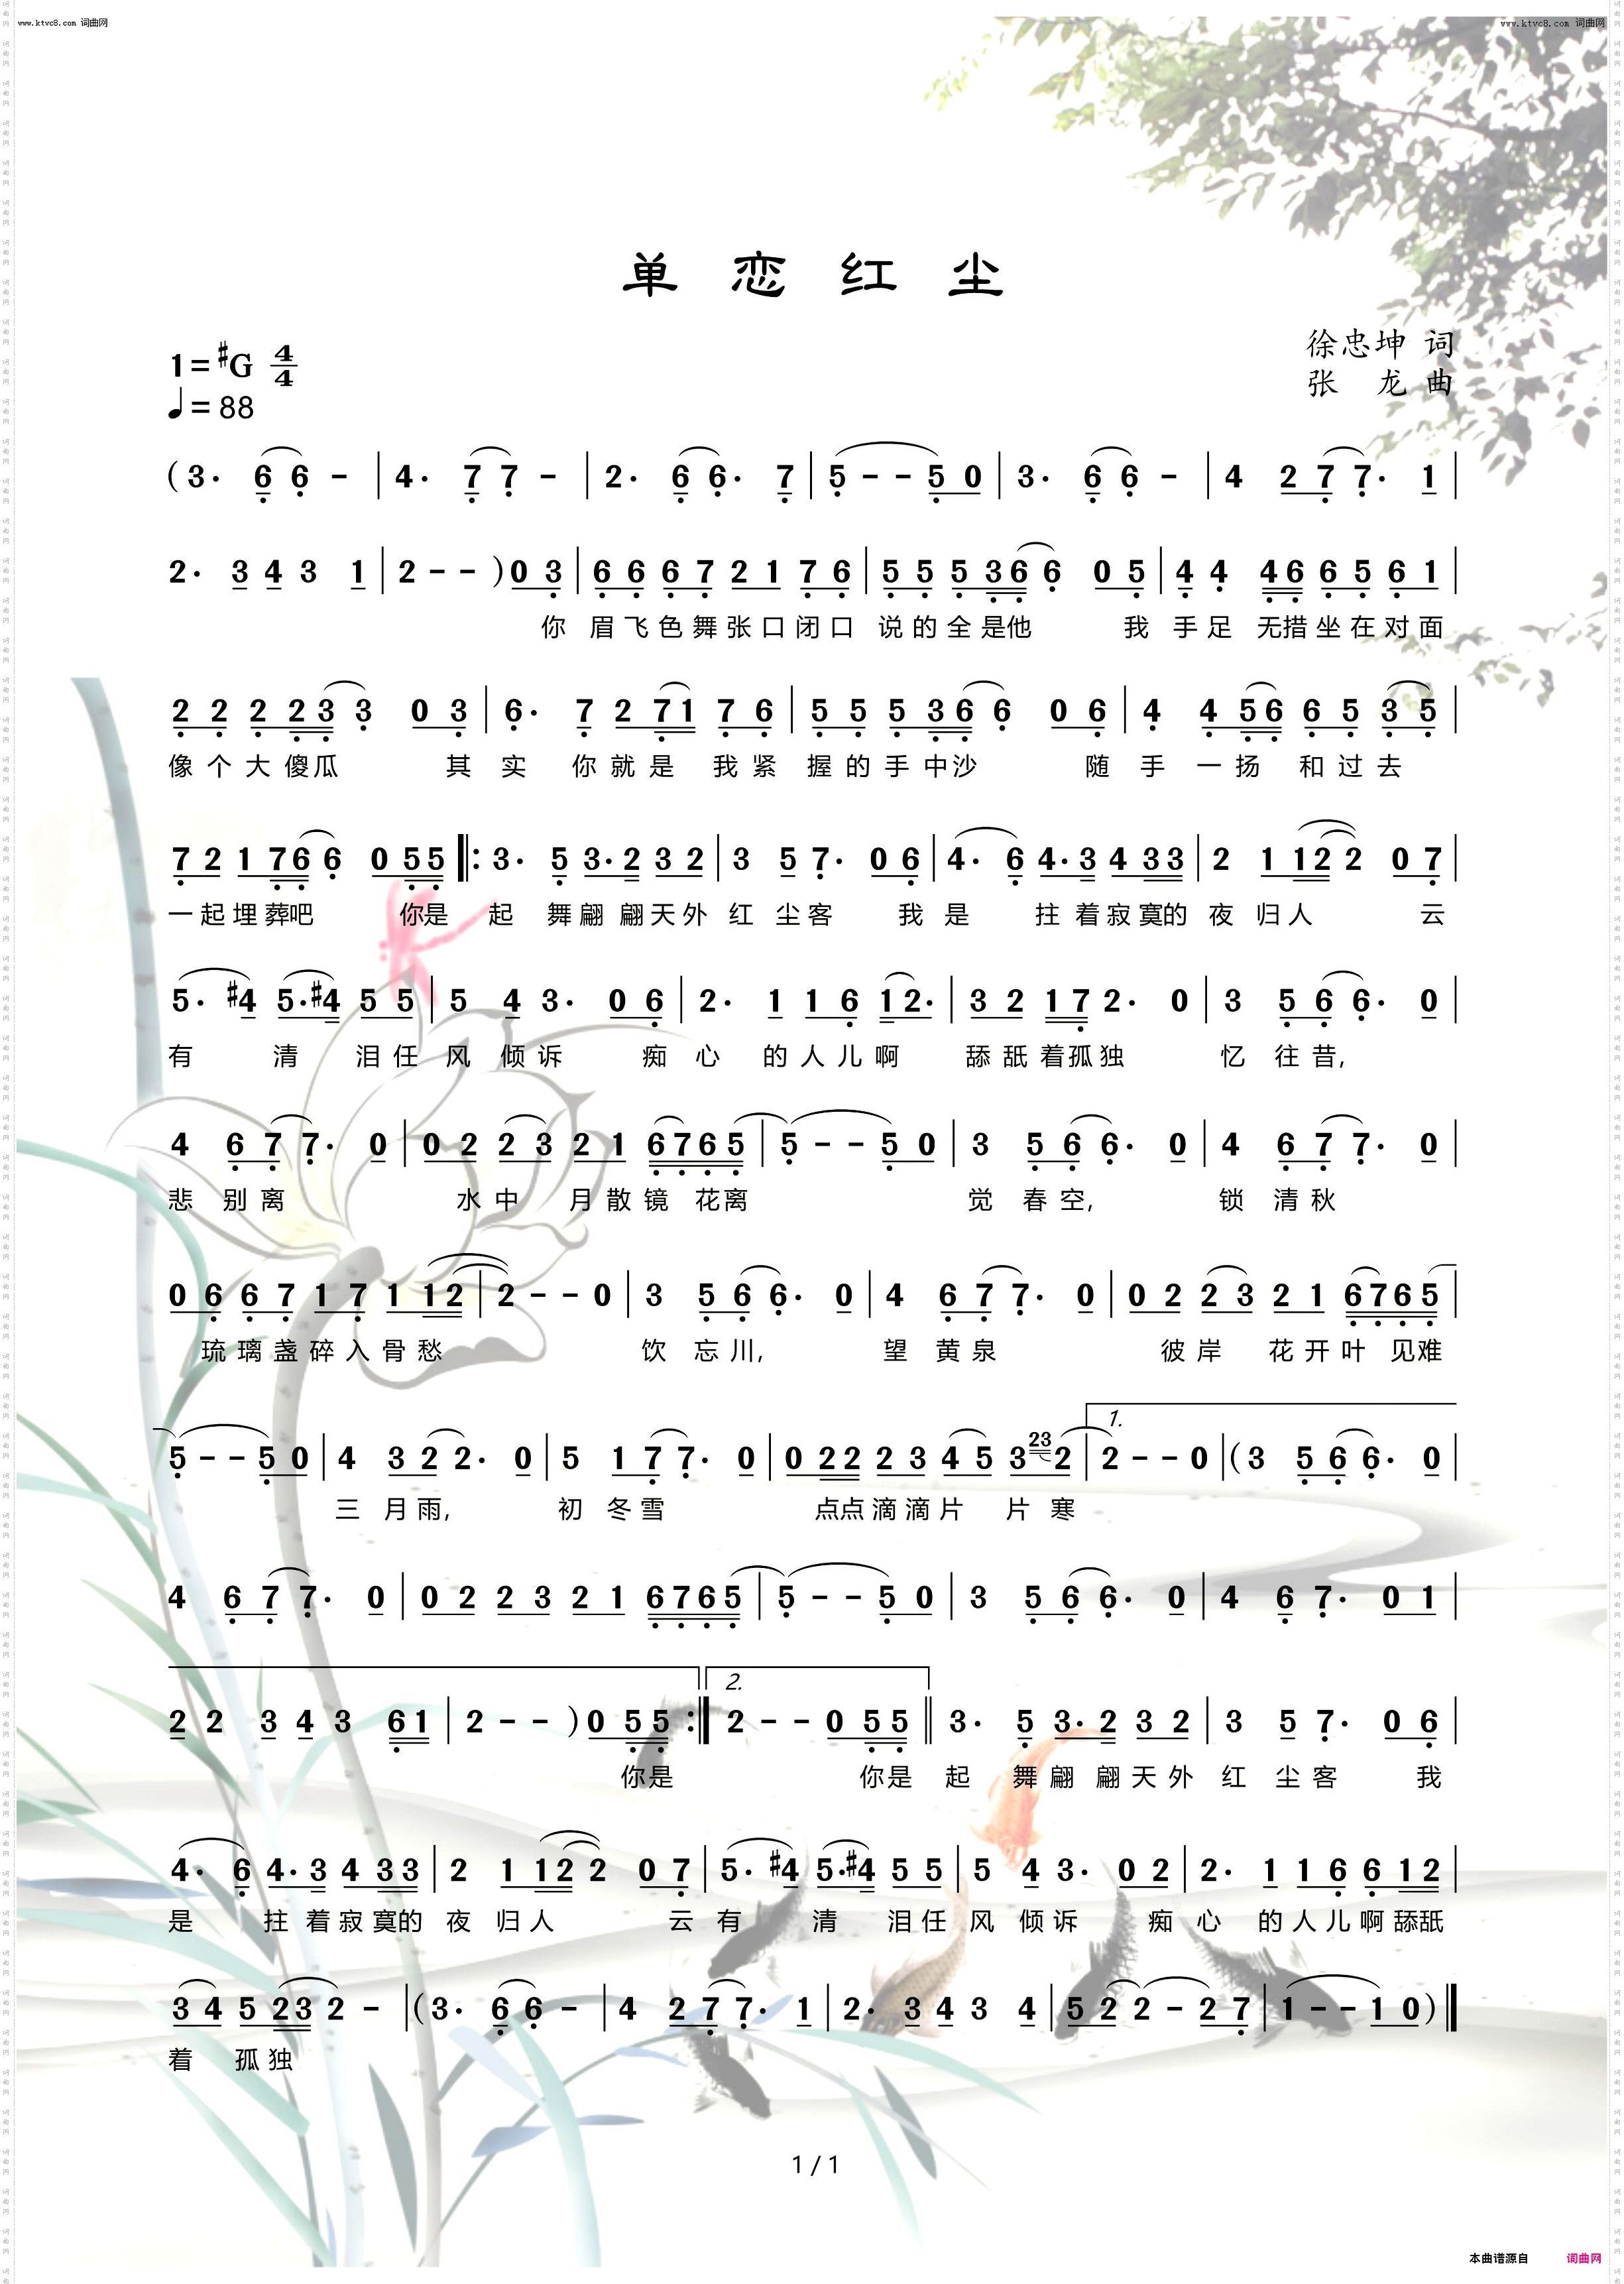 www.ktvc8.com 词曲网
www.ktvc8.com 词曲网
单 恋 红 尘
1=#G 4/4
徐忠坤 词
♩=88
张 龙 曲
(3· 6 6 - | 4· 7 7 - | 2· 6 6· 7 | 5 - - 5 0 | 3· 6 6 - | 4 2 7 7· 1 |
2· 3 4 3 1 | 2 - - ) 0 3 | 6 6 6 7 2 1 7 6 | 5 5 5 3 6 6 0 5 | 4 4 4 6 6 5 6 1 |
你 眉飞色舞张口闭口 说的全是他 我 手足 无措坐在对面
2 2 2 2 3 3 0 3 | 6· 7 2 7 1 7 6 | 5 5 5 3 6 6 0 6 | 4 4 5 6 6 5 3 5 |
像个大傻瓜 其 实 你就是 我紧 握的手中沙 随 手 一扬 和过去
7 2 1 7 6 6 0 5 5 |: 3· 5 3· 2 3 2 | 3 5 7· 0 6 | 4· 6 4· 3 4 3 3 | 2 1 1 2 2 0 7 |
一起埋葬吧 你是 起 舞翩翩天外 红 尘客 我 是 拄着寂寞的 夜 归人 云
5· #4 5· #4 5 5 | 5 4 3· 0 6 | 2· 1 1 6 1 2· | 3 2 1 7 2· 0 | 3 5 6 6· 0 |
有 清 泪任 风 倾诉 痴 心 的人儿啊 舔舐着孤独 忆 往昔,
4 6 7 7· 0 | 0 2 2 3 2 1 6 7 6 5 | 5 - - 5 0 | 3 5 6 6· 0 | 4 6 7 7· 0 |
悲 别离 水中 月散镜 花离 觉 春空, 锁 清秋
0 6 6 7 1 7 1 1 2 | 2 - - 0 | 3 5 6 6· 0 | 4 6 7 7· 0 | 0 2 2 3 2 1 6 7 6 5 |
琉璃盏碎入骨愁 饮 忘川, 望 黄泉 彼岸 花开叶 见难
5 - - 5 0 | 4 3 2 2· 0 | 5 1 7 7· 0 | 0 2 2 2 3 4 5 3 23 2 | 1. 2 - - 0 | (3 5 6 6· 0 |
三 月雨, 初 冬雪 点点滴滴片 片 寒
4 6 7 7· 0 | 0 2 2 3 2 1 6 7 6 5 | 5 - - 5 0 | 3 5 6 6· 0 | 4 6 7· 0 1 |
2 2 3 4 3 6 1 | 2 - - ) 0 5 5 :| 2. 2 - - 0 5 5 || 3· 5 3· 2 3 2 | 3 5 7· 0 6 |
你是 你是 起 舞翩翩天外 红 尘客 我
4· 6 4· 3 4 3 3 | 2 1 1 2 2 0 7 | 5· #4 5· #4 5 5 | 5 4 3· 0 2 | 2· 1 1 6 6 1 2 |
是 拄着寂寞的 夜 归人 云 有 清 泪任 风 倾诉 痴 心 的人儿啊舔舐
3 4 5 2 3 2 - | (3· 6 6 - | 4 2 7 7· 1 | 2· 3 4 3 4 | 5 2 2 - 2 7 | 1 - - 1 0) ||
着 孤独
1 / 1
本曲谱源自 词曲网